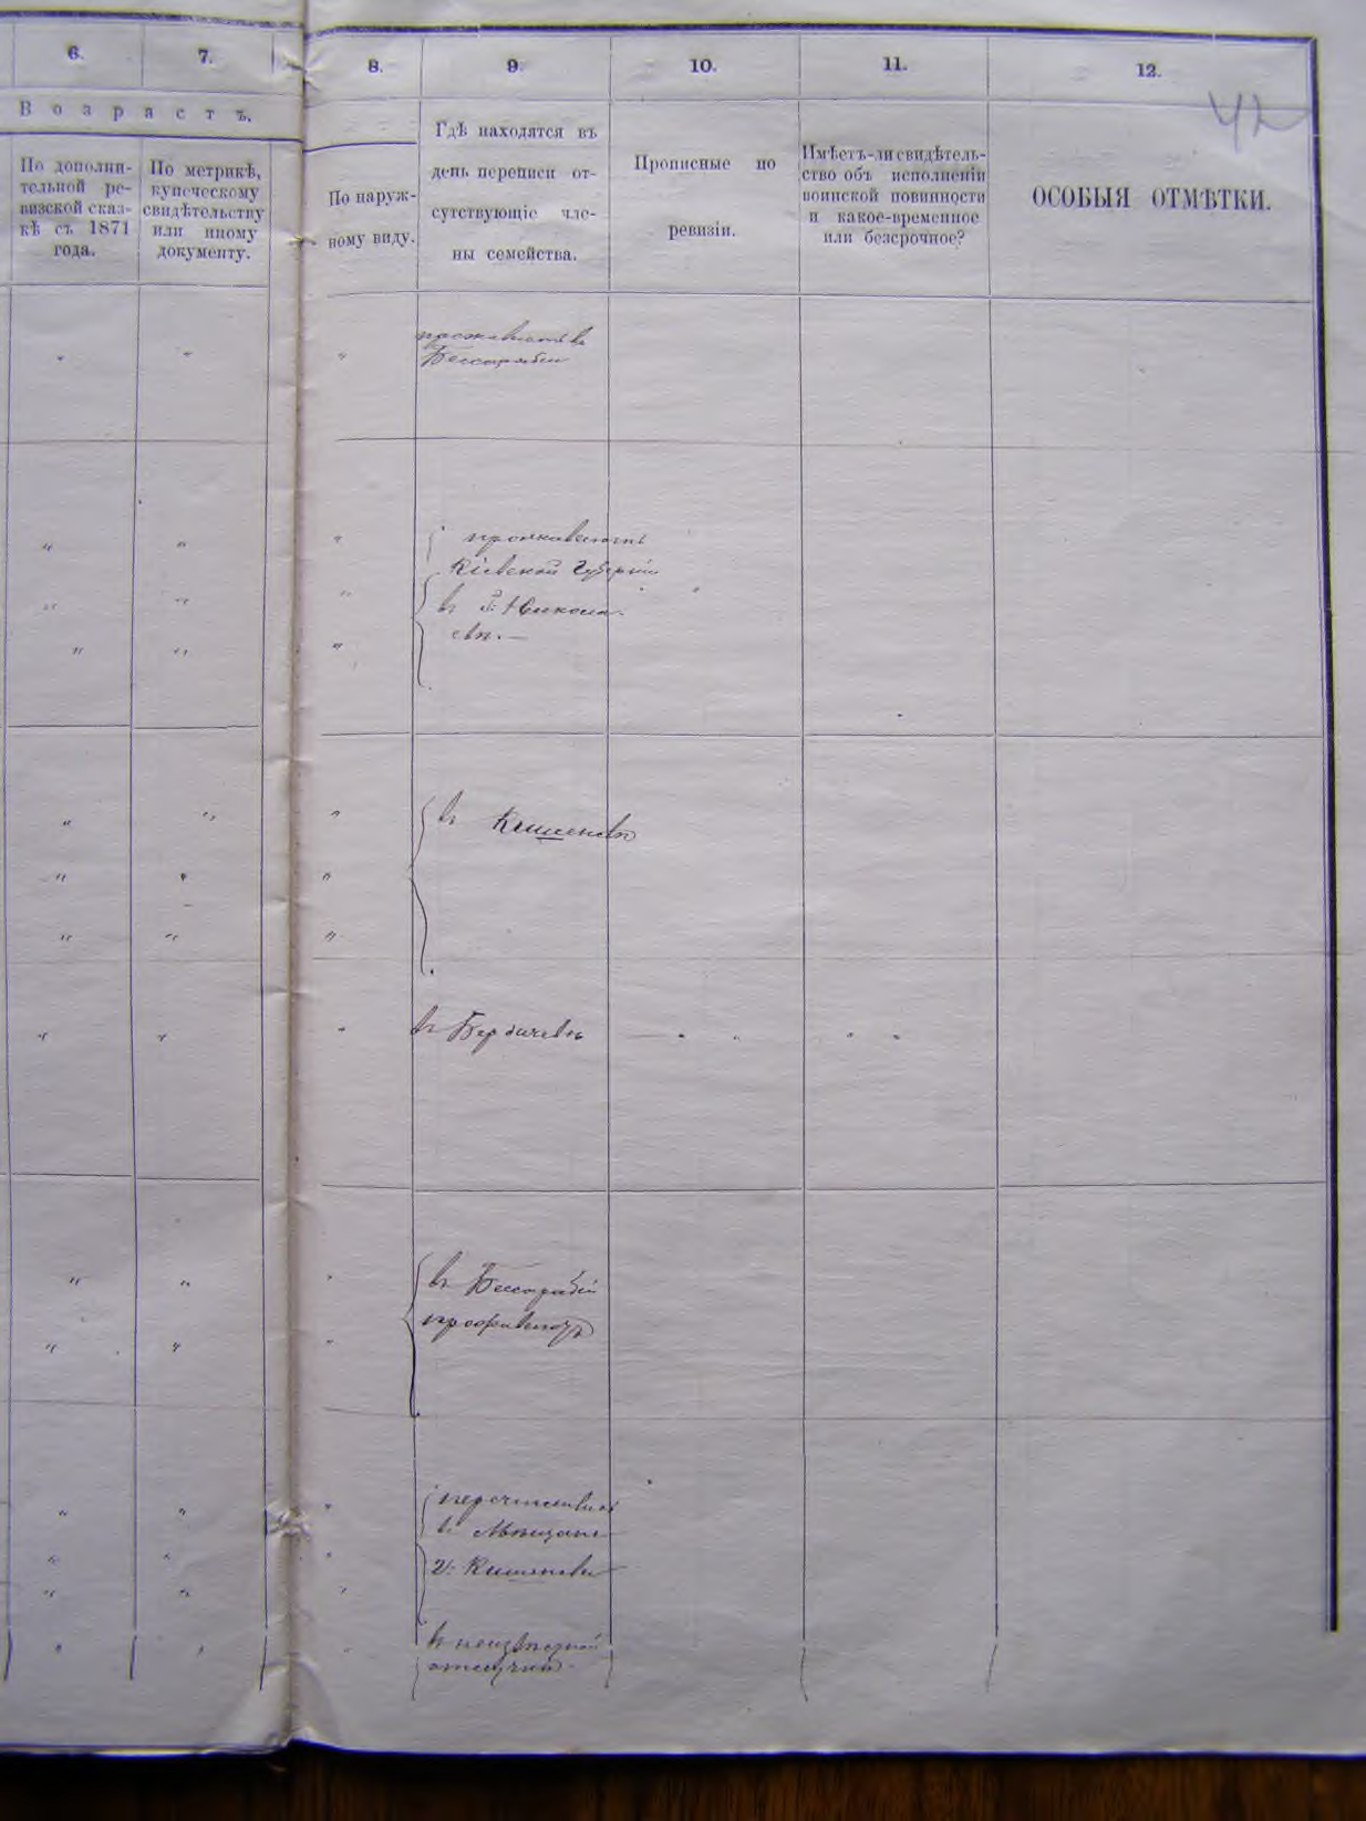 6.
7.
8.
9.
10.
11.
12.
42
Возрастъ.
По дополни-
тельной ре-
визской сказ-
кѣ съ 1871
года.
По метрикѣ,
купеческому
свидѣтельству
или иному
документу.
По наруж-
ному виду.
Гдѣ находятся въ
день переписи от-
сутствующіе чле-
ны семейства.
Прописные по
ревизіи.
Имѣетъ-ли свидѣтель-
ство объ исполненіи
воинской повинности
и какое-временное
или безсрочное?
ОСОБЫЯ ОТМѢТКИ.
" " "
Бессарабіи
" " "
проживаютъ
Кіевской Губерніи
" " "
въ г. Никола-
" " "
евѣ. —
" " "
въ Кишиневѣ
" " "
" " "
" " " въ Бердичевѣ
" " "
въ Бессарабіи
проживаютъ
" " "
" " "
перечислились
въ Мѣщане
" " "
г. Кишинева
" " "
" " "
въ неизвѣстной
отлучкѣ